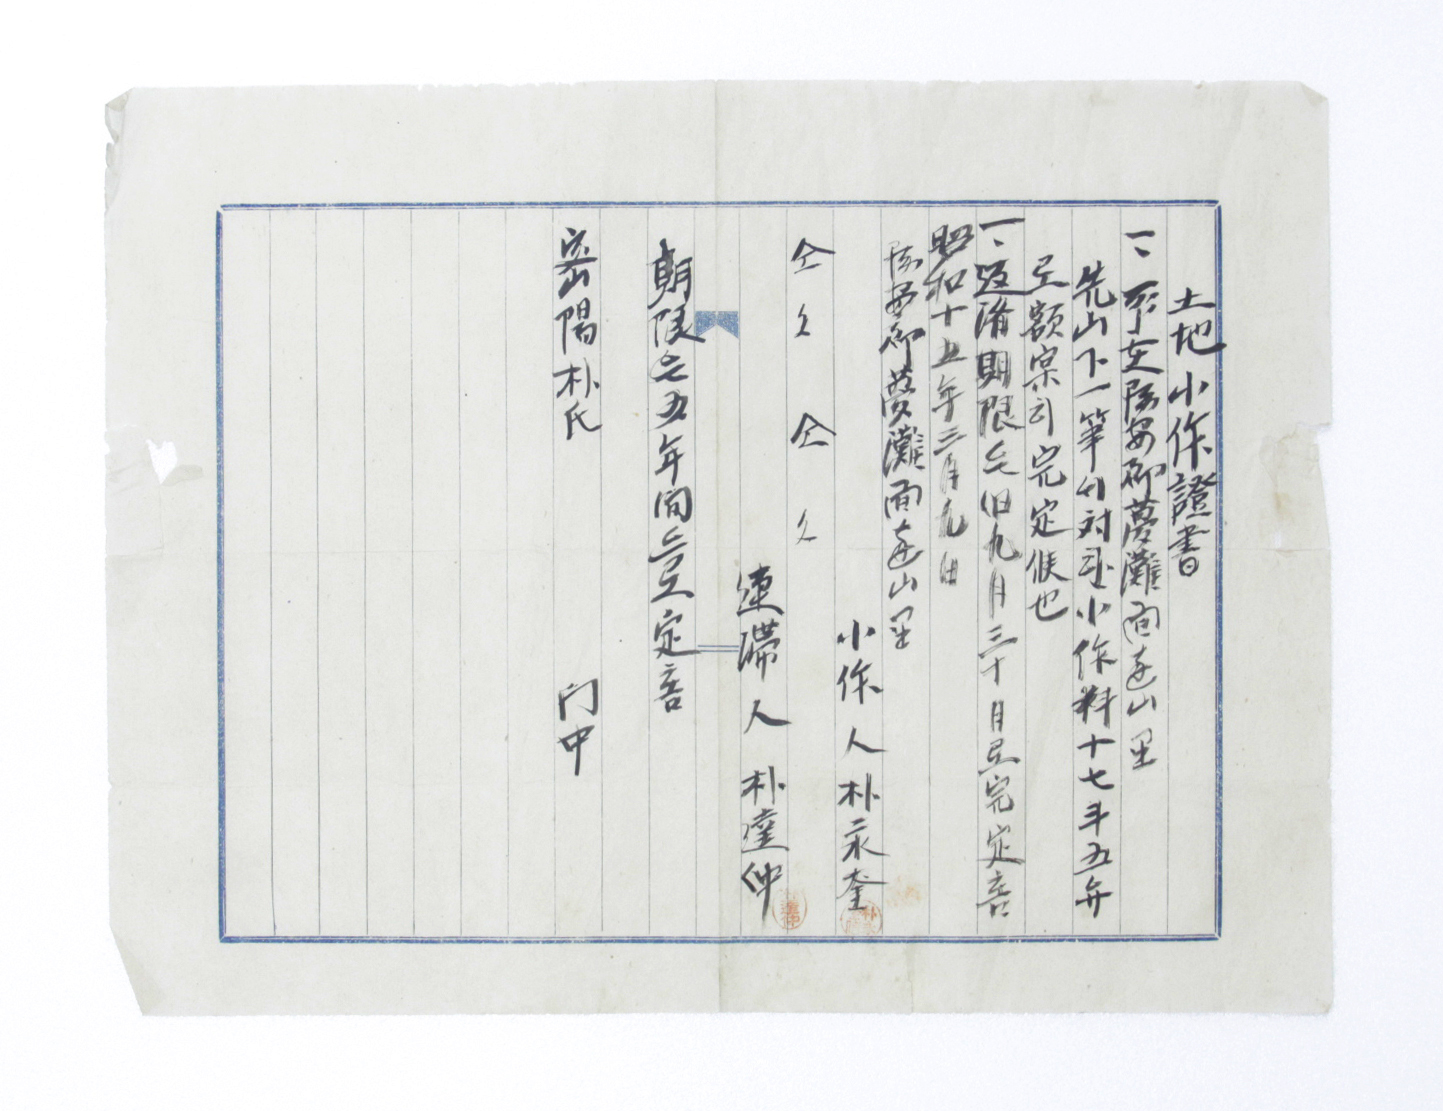 土地小作證書
一、所在務安郡夢灘面達山里
先山下一筆에対하야小作料十七斗五升
로額宲히完定候也
一、返濟期限은旧九月三十日로完定홈
昭和十五年三月九日
務安郡夢灘面達山里
小作人 朴永奎
仝 仝
連滯人 朴達仲
期限은五年間으로定홈
密陽朴氏 门中